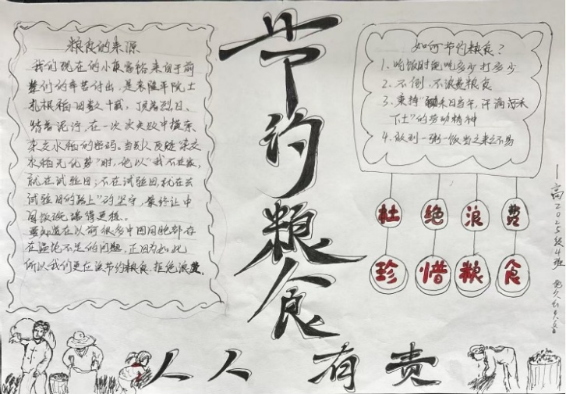 粮食的来源
我们现在的小康富裕来自于前
辈们的辛苦付出，是袁隆平院士
扎根稻田数十载，顶着烈日、
踏着泥泞，在一次次失败中探索
杂交水稻的密码。当别人质疑"杂交
水稻无优势"时，他以"我不在家，
就在试验田；不在试验田，就在去
试验田的路上"的坚守，最终让中
国饭碗端得更稳。
在以前很多中国同胞都存
在温饱不足的问题，正因为如此
所以我们更应该节约粮食，拒绝浪费。
节约粮食
人人有责
如何节约粮食？
1、吃饭时能吃多少打多少
2、不倒、不浪费粮食
3、秉持"锄禾日当午，汗滴禾
下土"的劳动精神
4、做到一粥一饭当思来之不易
杜绝浪费
珍惜粮食
一高2025级4班